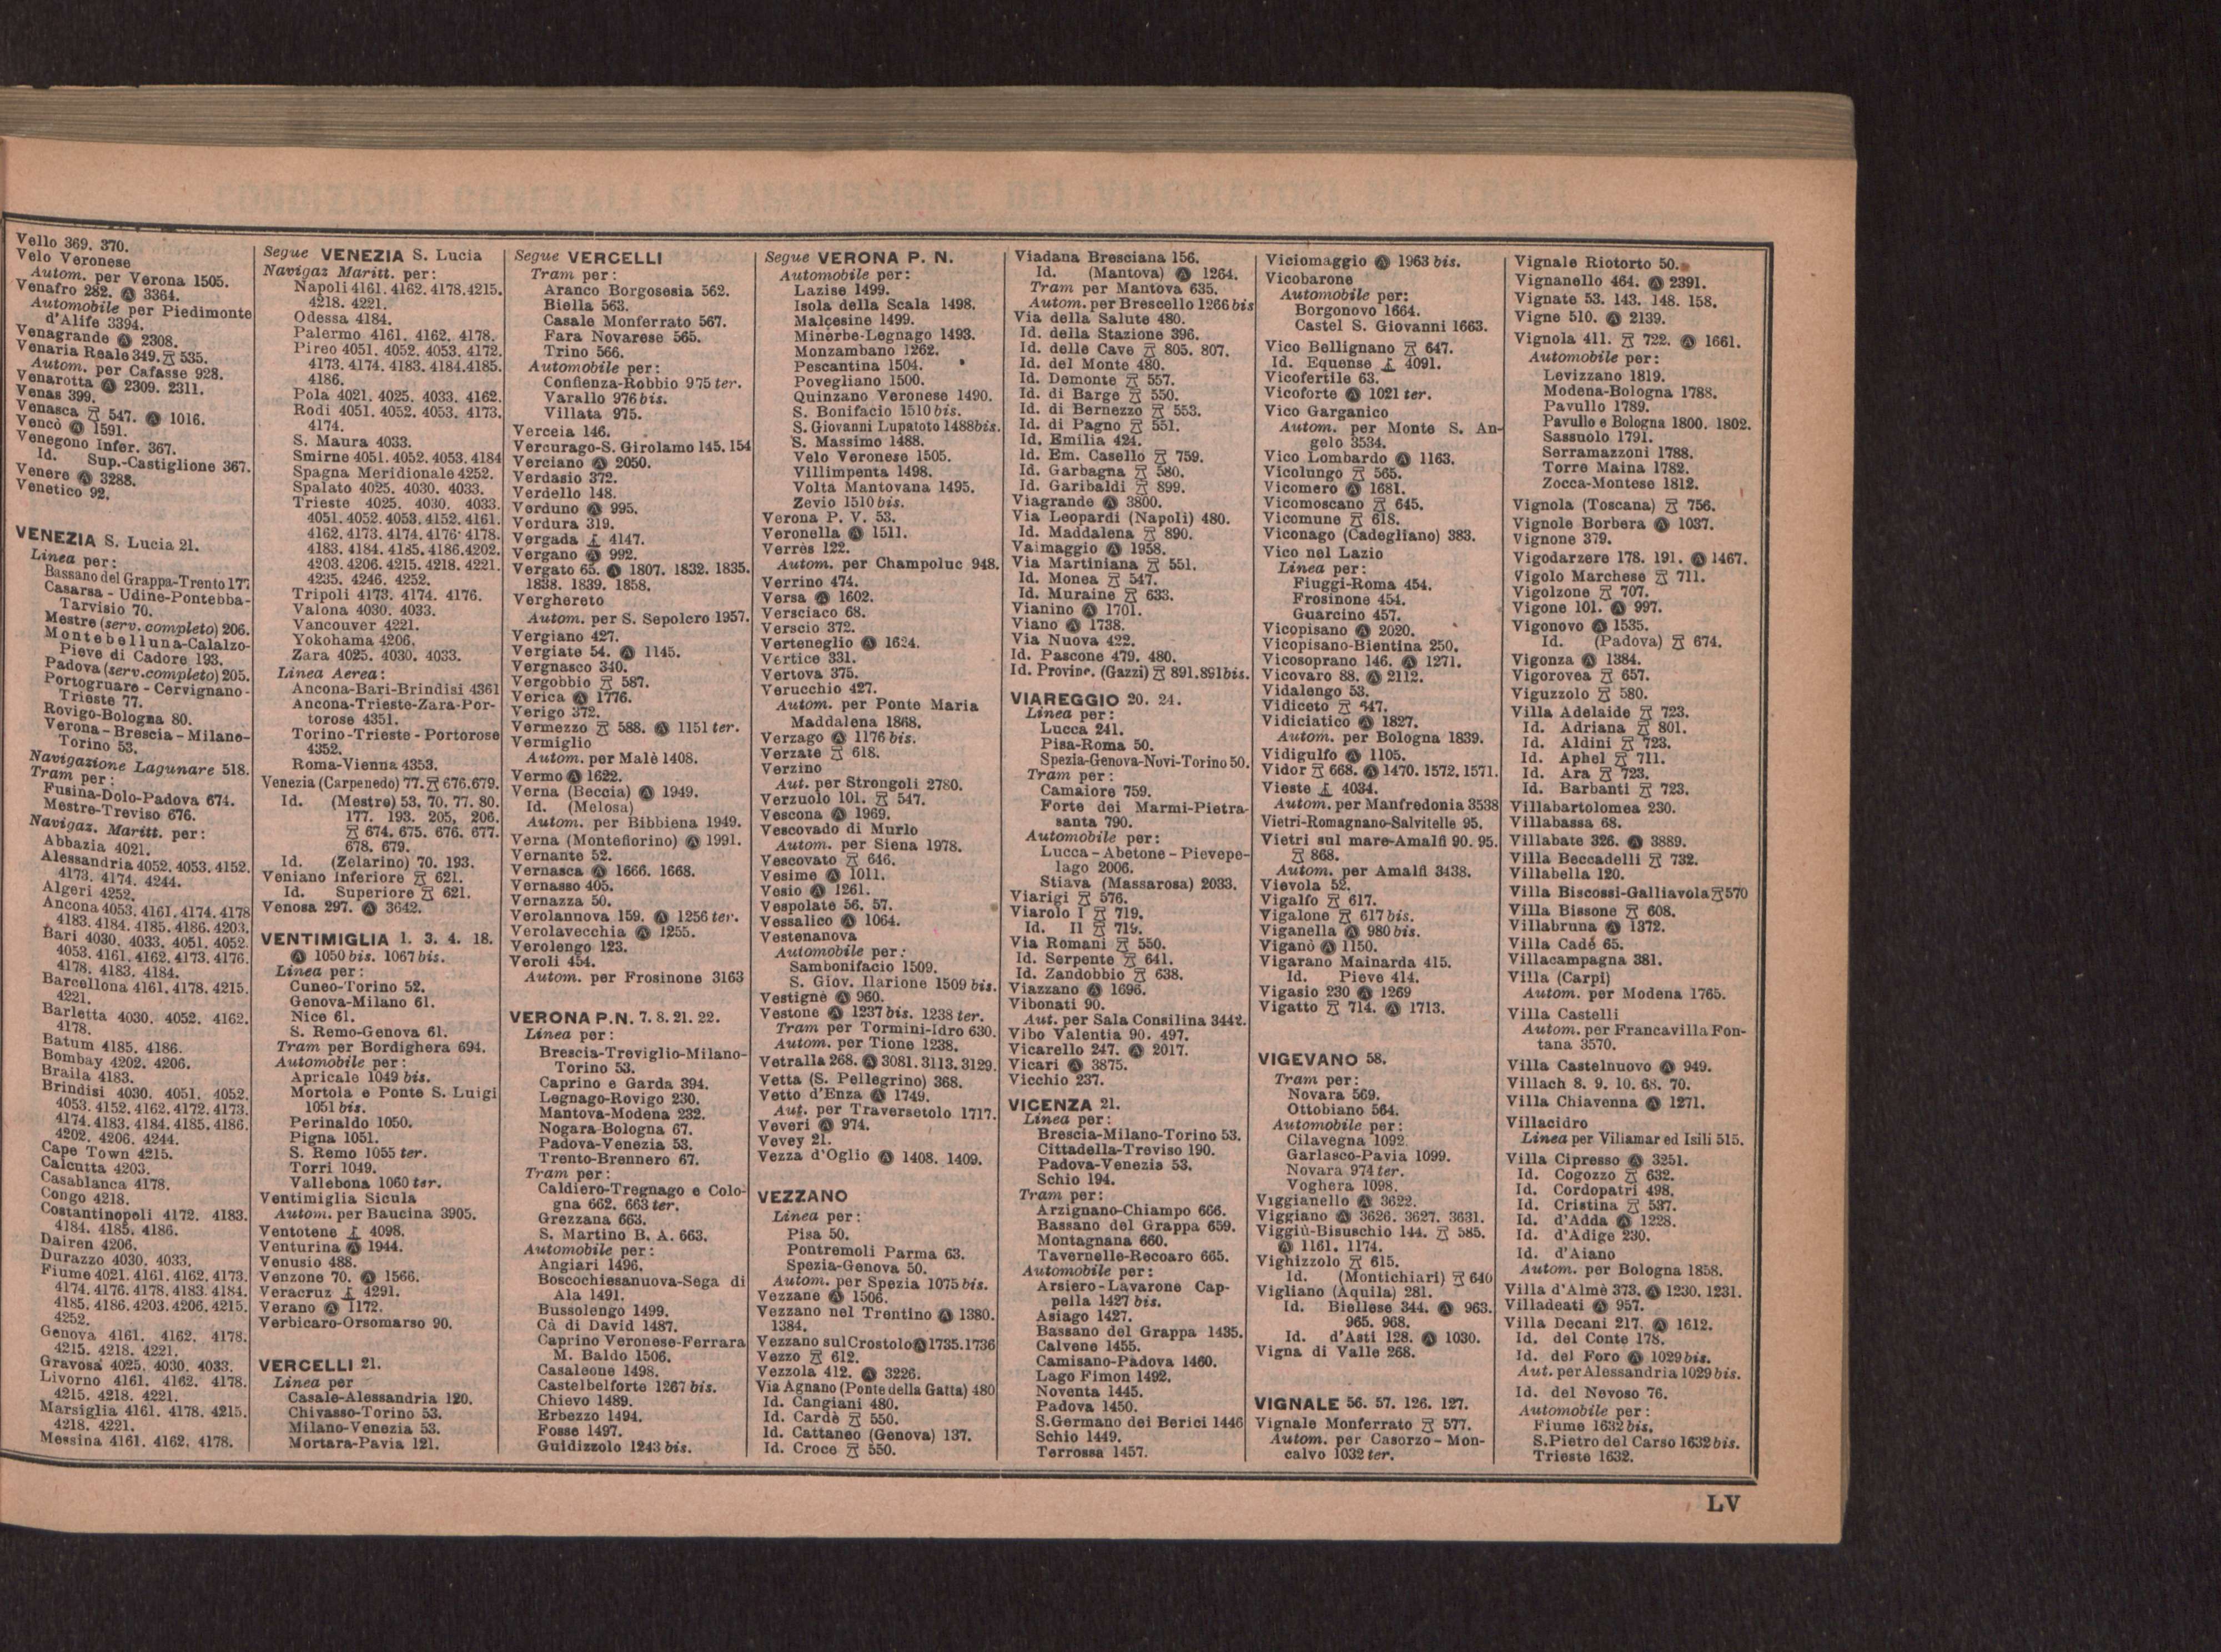 Vello 369. 370.
Velo Veronese
Autom. per Verona 1505.
Venafro 282. Ⓐ 3364.
Automobile per Piedimonte
d'Alife 3394.
Venagrande Ⓐ 2308.
Venaria Reale 349. 535.
Autom. per Cafasse 928.
Venarotta Ⓐ 2309. 2311.
Venas 399.
Venasca 547. Ⓐ 1016.
Vencò Ⓐ 1591.
Venegono Infer. 367.
Id. Sup.-Castiglione 367.
Venere Ⓐ 3288.
Venetico 92.
VENEZIA S. Lucia 21.
Linea per:
Bassano del Grappa-Trento 177
Casarsa - Udine-Pontebba-
Tarvisio 70.
Mestre (serv. completo) 206.
Montebelluna-Calalzo-
Pieve di Cadore 193.
Padova (serv. completo) 205.
Portogruaro - Cervignano -
Trieste 77.
Rovigo-Bologna 80.
Verona - Brescia - Milano-
Torino 53.
Navigazione Lagunare 518.
Tram per:
Fusina-Dolo-Padova 674.
Mestre-Treviso 676.
Navigaz. Maritt. per:
Abbazia 4021.
Alessandria 4052. 4053. 4152.
4173. 4174. 4244.
Algeri 4252.
Ancona 4053. 4161. 4174. 4178
4183. 4184. 4185. 4186. 4203.
Bari 4030. 4033. 4051. 4052.
4053. 4161. 4162. 4173. 4176.
4178. 4183. 4184.
Barcellona 4161. 4178. 4215.
4221.
Barletta 4030. 4052. 4162.
4178.
Batum 4185. 4186.
Bombay 4202. 4206.
Braila 4183.
Brindisi 4030. 4051. 4052.
4053. 4152. 4162. 4172. 4173.
4174. 4183. 4184. 4185. 4186.
4202. 4206. 4244.
Cape Town 4215.
Calcutta 4203.
Casablanca 4178.
Congo 4218.
Costantinopoli 4172. 4183.
4184. 4185. 4186.
Dairen 4206.
Durazzo 4030. 4033.
Fiume 4021. 4161. 4162. 4173.
4174. 4176. 4178. 4183. 4184.
4185. 4186. 4203. 4206. 4215.
4252.
Genova 4161. 4162. 4178.
4215. 4218. 4221.
Gravosa 4025. 4030. 4033.
Livorno 4161. 4162. 4178.
4215. 4218. 4221.
Marsiglia 4161. 4178. 4215.
4218. 4221.
Messina 4161. 4162. 4178.
Segue VENEZIA S. Lucia
Navigaz Maritt. per:
Napoli 4161. 4162. 4178. 4215.
4218. 4221.
Odessa 4184.
Palermo 4161. 4162. 4178.
Pireo 4051. 4052. 4053. 4172.
4173. 4174. 4183. 4184. 4185.
4186.
Pola 4021. 4025. 4033. 4162.
Rodi 4051. 4052. 4053. 4173.
4174.
S. Maura 4033.
Smirne 4051. 4052. 4053. 4184
Spagna Meridionale 4252.
Spalato 4025. 4030. 4033.
Trieste 4025. 4030. 4033.
4051. 4052. 4053. 4152. 4161.
4162. 4173. 4174. 4176. 4178.
4183. 4184. 4185. 4186. 4202.
4203. 4206. 4215. 4218. 4221.
4235. 4246. 4252.
Tripoli 4173. 4174. 4176.
Valona 4030. 4033.
Vancouver 4221.
Yokohama 4206.
Zara 4025. 4030. 4033.
Linea Aerea:
Ancona-Bari-Brindisi 4361
Ancona-Trieste-Zara-Por-
torose 4351.
Torino-Trieste - Portorose
4352.
Roma-Vienna 4353.
Venezia (Carpenedo) 77. 676. 679.
Id. (Mestre) 53. 70. 77. 80.
177. 193. 205, 206.
674. 675. 676. 677.
678. 679.
Id. (Zelarino) 70. 193.
Veniano Inferiore 621.
Id. Superiore 621.
Venosa 297. Ⓐ 3642.
VENTIMIGLIA 1. 3. 4. 18.
Ⓐ 1050 bis. 1067 bis.
Linea per:
Cuneo-Torino 52.
Genova-Milano 61.
Nice 61.
S. Remo-Genova 61.
Tram per Bordighera 694.
Automobile per:
Apricale 1049 bis.
Mortola e Ponte S. Luigi
1051 bis.
Perinaldo 1050.
Pigna 1051.
S. Remo 1055 ter.
Torri 1049.
Vallebona 1060 ter.
Ventimiglia Sicula
Autom. per Baucina 3905.
Ventotene 4098.
Venturina Ⓐ 1944.
Venusio 488.
Venzone 70. Ⓐ 1566.
Veracruz 4291.
Verano Ⓐ 1172.
Verbicaro-Orsomarso 90.
VERCELLI 21.
Linea per
Casale-Alessandria 120.
Chivasso-Torino 53.
Milano-Venezia 53.
Mortara-Pavia 121.
Segue VERCELLI
Tram per:
Aranco Borgosesia 562.
Biella 563.
Casale Monferrato 567.
Fara Novarese 565.
Trino 566.
Automobile per:
Confienza-Robbio 975 ter.
Varallo 976 bis.
Villata 975.
Verceia 146.
Vercurago-S. Girolamo 145. 154
Verciano Ⓐ 2050.
Verdasio 372.
Verdello 148.
Verduno Ⓐ 995.
Verdura 319.
Vergada 4147.
Vergano Ⓐ 992.
Vergato 65. Ⓐ 1807. 1832. 1835.
1838. 1839. 1858.
Verghereto
Autom. per S. Sepolcro 1957.
Vergiano 427.
Vergiate 54. Ⓐ 1145.
Vergnasco 340.
Vergobbio 587.
Verica Ⓐ 1776.
Verigo 372.
Vermezzo 588. Ⓐ 1151 ter.
Vermiglio
Autom. per Malè 1408.
Vermo Ⓐ 1622.
Verna (Beccia) Ⓐ 1949.
Id. (Melosa)
Autom. per Bibbiena 1949.
Verna (Montefiorino) Ⓐ 1991.
Vernante 52.
Vernasca Ⓐ 1666. 1668.
Vernasso 405.
Vernazza 50.
Verolanuova 159. Ⓐ 1256 ter.
Verolavecchia Ⓐ 1255.
Verolengo 123.
Veroli 454.
Autom. per Frosinone 3163
VERONA P.N. 7. 8. 21. 22.
Linea per:
Brescia-Treviglio-Milano-
Torino 53.
Caprino e Garda 394.
Legnago-Rovigo 230.
Mantova-Modena 232.
Nogara-Bologna 67.
Padova-Venezia 53.
Trento-Brennero 67.
Tram per:
Caldiero-Tregnago e Colo-
gna 662. 663 ter.
Grezzana 663.
S. Martino B. A. 663.
Automobile per:
Angiari 1496.
Boscochiesanuova-Sega di
Ala 1491.
Bussolengo 1499.
Cà di David 1487.
Caprino Veronese-Ferrara
M. Baldo 1506.
Casaleone 1498.
Castelbelforte 1267 bis.
Chievo 1489.
Erbezzo 1494.
Fosse 1497.
Guidizzolo 1243 bis.
Segue VERONA P. N.
Automobile per:
Lazise 1499.
Isola della Scala 1498.
Malcesine 1499.
Minerbe-Legnago 1493.
Monzambano 1262.
Pescantina 1504.
Povegliano 1500.
Quinzano Veronese 1490.
S. Bonifacio 1510 bis.
S. Giovanni Lupatoto 1488bis.
S. Massimo 1488.
Velo Veronese 1505.
Villimpenta 1498.
Volta Mantovana 1495.
Zevio 1510 bis.
Verona P. V. 53.
Veronella Ⓐ 1511.
Verrès 122.
Autom. per Champoluc 948.
Verrino 474.
Versa Ⓐ 1602.
Versciaco 68.
Verscio 372.
Verteneglio Ⓐ 1624.
Vertice 331.
Vertova 375.
Verucchio 427.
Autom. per Ponte Maria
Maddalena 1868.
Verzago Ⓐ 1176 bis.
Verzate 618.
Verzino
Aut. per Strongoli 2780.
Verzuolo 101. 547.
Vescona Ⓐ 1969.
Vescovado di Murlo
Autom. per Siena 1978.
Vescovato 646.
Vesime Ⓐ 1011.
Vesio Ⓐ 1261.
Vespolate 56. 57.
Vessalico Ⓐ 1064.
Vestenanova
Automobile per:
Sambonifacio 1509.
S. Giov. Ilarione 1509 bis.
Vestignè Ⓐ 960.
Vestone Ⓐ 1237 bis. 1238 ter.
Tram per Tormini-Idro 630.
Autom. per Tione 1238.
Vetralla 268. Ⓐ 3081. 3113. 3129.
Vetta (S. Pellegrino) 368.
Vetto d'Enza Ⓐ 1749.
Aut. per Traversetolo 1717.
Veveri Ⓐ 974.
Vevey 21.
Vezza d'Oglio Ⓐ 1408. 1409.
VEZZANO
Linea per:
Pisa 50.
Pontremoli Parma 63.
Spezia-Genova 50.
Autom. per Spezia 1075 bis.
Vezzane Ⓐ 1506.
Vezzano nel Trentino Ⓐ 1380.
1384.
Vezzano sul Crostolo Ⓐ 1735. 1736
Vezzo 612.
Vezzola 412. Ⓐ 3226.
Via Agnano (Ponte della Gatta) 480
Id. Cangiani 480.
Id. Cardè 550.
Id. Cattaneo (Genova) 137.
Id. Croce 550.
Viadana Bresciana 156.
Id. (Mantova) Ⓐ 1264.
Tram per Mantova 635.
Autom. per Brescello 1266 bis
Via della Salute 480.
Id. della Stazione 396.
Id. delle Cave 805. 807.
Id. del Monte 480.
Id. Demonte 557.
Id. di Barge 550.
Id. di Bernezzo 553.
Id. di Pagno 551.
Id. Emilia 424.
Id. Em. Casello 759.
Id. Garbagna 580.
Id. Garibaldi 899.
Viagrande Ⓐ 3800.
Via Leopardi (Napoli) 480.
Id. Maddalena 890.
Vaimaggio Ⓐ 1958.
Via Martiniana 551.
Id. Monea 547.
Id. Muraine 633.
Vianino Ⓐ 1701.
Viano Ⓐ 1738.
Via Nuova 422.
Id. Pascone 479. 480.
Id. Provinc. (Gazzi) 891. 891bis.
VIAREGGIO 20. 24.
Linea per:
Lucca 241.
Pisa-Roma 50.
Spezia-Genova-Novi-Torino 50.
Tram per:
Camaiore 759.
Forte dei Marmi-Pietra-
santa 790.
Automobile per:
Lucca - Abetone - Pievepe-
lago 2006.
Stiava (Massarosa) 2033.
Viarigi 576.
Viarolo I 719.
Id. II 719.
Via Romani 550.
Id. Serpente 641.
Id. Zandobbio 638.
Viazzano Ⓐ 1696.
Vibonati 90.
Aut. per Sala Consilina 3442.
Vibo Valentia 90. 497.
Vicarello 247. Ⓐ 2017.
Vicari Ⓐ 3875.
Vicchio 237.
VICENZA 21.
Linea per:
Brescia-Milano-Torino 53.
Cittadella-Treviso 190.
Padova-Venezia 53.
Schio 194.
Tram per:
Arzignano-Chiampo 666.
Bassano del Grappa 659.
Montagnana 660.
Tavernelle-Recoaro 665.
Automobile per:
Arsiero - Lavarone Cap-
pella 1427 bis.
Asiago 1427.
Bassano del Grappa 1435.
Calvene 1455.
Camisano-Padova 1460.
Lago Fimon 1492.
Noventa 1445.
Padova 1450.
S. Germano dei Berici 1446
Schio 1449.
Terrossa 1457.
Viciomaggio Ⓐ 1963 bis.
Vicobarone
Automobile per:
Borgonovo 1664.
Castel S. Giovanni 1663.
Vico Bellignano 647.
Id. Equense 4091.
Vicofertile 63.
Vicoforte Ⓐ 1021 ter.
Vico Garganico
Autom. per Monte S. An-
gelo 3534.
Vico Lombardo Ⓐ 1163.
Vicolungo 565.
Vicomero Ⓐ 1681.
Vicomoscano 645.
Vicomune 618.
Viconago (Cadegliano) 383.
Vico nel Lazio
Linea per:
Fiuggi-Roma 454.
Frosinone 454.
Guarcino 457.
Vicopisano Ⓐ 2020.
Vicopisano-Bientina 250.
Vicosoprano 146. Ⓐ 1271.
Vicovaro 88. Ⓐ 2112.
Vidalengo 53.
Vidiceto 347.
Vidiciatico Ⓐ 1827.
Autom. per Bologna 1839.
Vidigulfo Ⓐ 1105.
Vidor 668. Ⓐ 1470. 1572. 1571.
Vieste 4034.
Autom. per Manfredonia 3538
Vietri-Romagnano-Salvitelle 95.
Vietri sul mare-Amalfi 90. 95.
868.
Autom. per Amalfi 3438.
Vievola 52.
Vigalfo 617.
Vigalone 617 bis.
Viganella Ⓐ 980 bis.
Viganò Ⓐ 1150.
Vigarano Mainarda 415.
Id. Pieve 414.
Vigasio 230 Ⓐ 1269
Vigatto 714. Ⓐ 1713.
VIGEVANO 58.
Tram per:
Novara 569.
Ottobiano 564.
Automobile per:
Cilavegna 1092.
Garlasco-Pavia 1099.
Novara 974 ter.
Voghera 1098.
Viggianello Ⓐ 3622.
Viggiano Ⓐ 3626. 3627. 3631.
Viggiù-Bisuschio 144. 585.
Ⓐ 1161. 1174.
Vighizzolo 615.
Id. (Montichiari) 640
Vigliano (Aquila) 281.
Id. Biellese 344. Ⓐ 963.
965. 968.
Id. d'Asti 128. Ⓐ 1030.
Vigna di Valle 268.
VIGNALE 56. 57. 126. 127.
Vignale Monferrato 577.
Autom. per Casorzo - Mon-
calvo 1032 ter.
Vignale Riotorto 50.
Vignanello 464. Ⓐ 2391.
Vignate 53. 143. 148. 158.
Vigne 510. Ⓐ 2139.
Vignola 411. 722. Ⓐ 1661.
Automobile per:
Levizzano 1819.
Modena-Bologna 1788.
Pavullo 1789.
Pavullo e Bologna 1800. 1802.
Sassuolo 1791.
Serramazzoni 1788.
Torre Maina 1782.
Zocca-Montese 1812.
Vignola (Toscana) 756.
Vignole Borbera Ⓐ 1037.
Vignone 379.
Vigodarzere 178. 191. Ⓐ 1467.
Vigolo Marchese 711.
Vigolzone 707.
Vigone 101. Ⓐ 997.
Vigonovo Ⓐ 1535.
Id. (Padova) 674.
Vigonza Ⓐ 1384.
Vigorovea 657.
Viguzzolo 580.
Villa Adelaide 723.
Id. Adriana 801.
Id. Aldini 723.
Id. Aphel 711.
Id. Ara 723.
Id. Barbanti 723.
Villabartolomea 230.
Villabassa 68.
Villabate 326. Ⓐ 3889.
Villa Beccadelli 732.
Villabella 120.
Villa Biscossi-Galliavola 570
Villa Bissone 608.
Villabruna Ⓐ 1372.
Villa Cadé 65.
Villacampagna 381.
Villa (Carpi)
Autom. per Modena 1765.
Villa Castelli
Autom. per Francavilla Fon-
tana 3570.
Villa Castelnuovo Ⓐ 949.
Villach 8. 9. 10. 68. 70.
Villa Chiavenna Ⓐ 1271.
Villacidro
Linea per Villamar ed Isili 515.
Villa Cipresso Ⓐ 3251.
Id. Cogozzo 632.
Id. Cordopatri 498.
Id. Cristina 537.
Id. d'Adda Ⓐ 1228.
Id. d'Adige 230.
Id. d'Aiano
Autom. per Bologna 1858.
Villa d'Almè 373. Ⓐ 1230. 1231.
Villadeati Ⓐ 957.
Villa Decani 217. Ⓐ 1612.
Id. del Conte 178.
Id. del Foro Ⓐ 1029 bis.
Aut. per Alessandria 1029 bis.
Id. del Nevoso 76.
Automobile per:
Fiume 1632 bis.
S. Pietro del Carso 1632 bis.
Trieste 1632.
LV